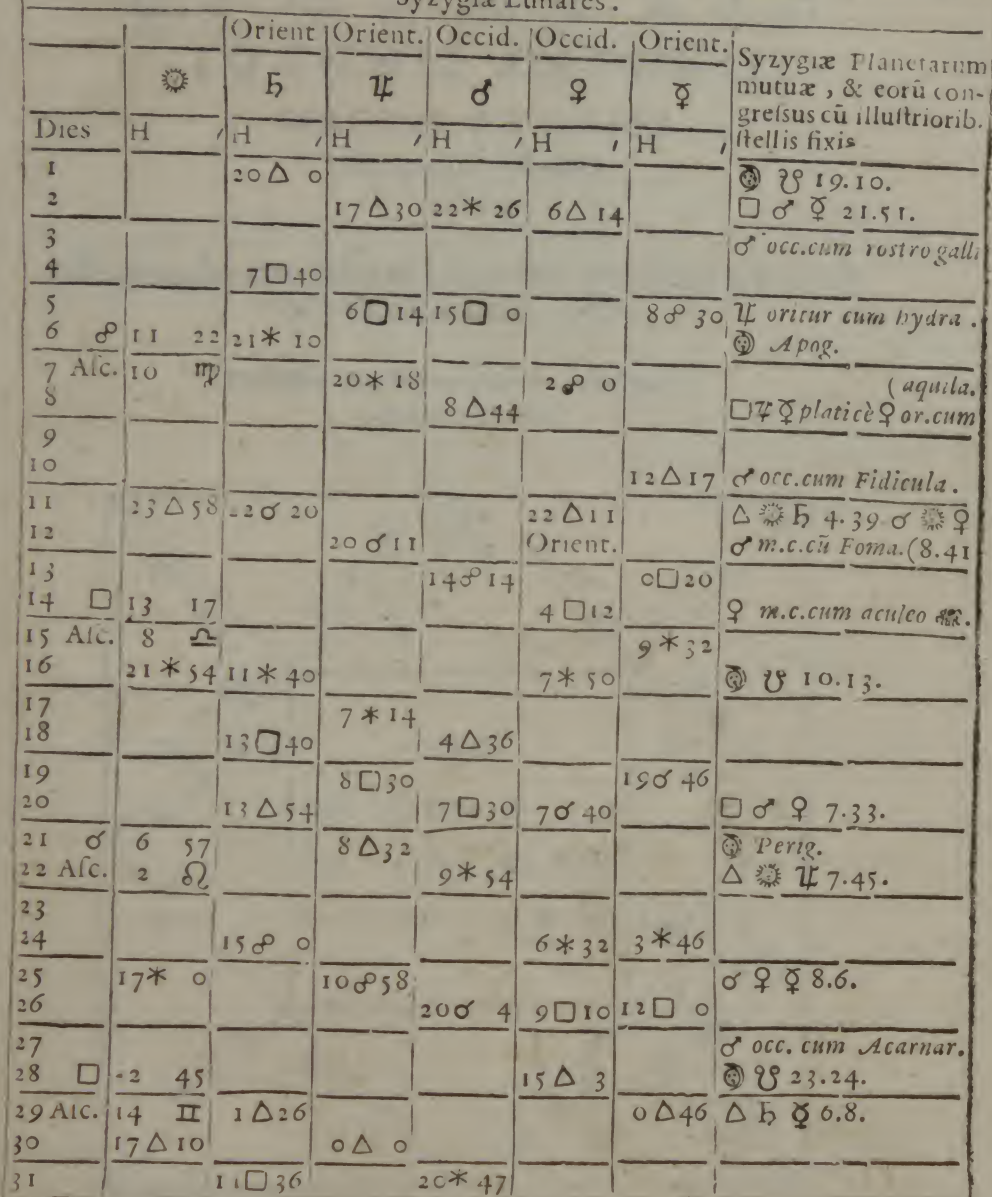 Syzygiæ Lunares.
Orient Orient. Occid. Occid. Orient. Syzygiæ Planetarum
☉ ♄ ♃ ♂ ♀ ☿ mutuæ, & eorū con-
greſsus cū illuſtriorib.
Dies H ′ H ′ H ′ H ′ H ′ H ′ ſtellis fixis
1 20 △ 0 ☽ ☋ 19.10.
2 17 △ 30 22 ⚹ 26 6 △ 14 □ ♂ ☿ 21.51.
3 ♂ occ.cum rostro galli
4 7 □ 40
5 6 □ 14 15 □ 0 8 ☍ 30 ♃ oritur cum hydra.
6 ☍ 11 22 21 ⚹ 10 ☽ Apog.
7 Aſc. 10 ♍ 20 ⚹ 18 2 ☍ 0 (aquila.
8 8 △ 44 □ ♃ ☿ platicè ♀ or.cum
9
10 12 △ 17 ♂ occ.cum Fidicula.
11 23 △ 58 22 ☌ 20 22 △ 11 △ ☉ ♄ 4.39 ☌ ☉ ♀
12 20 ☌ 11 Orient. ♂ m.c.cū Foma.(8.41
13 14 ☍ 14 0 □ 20
14 □ 13 17 4 □ 12 ♀ m.c.cum aculeo
15 Aſc. 8 ♎ 9 ⚹ 32
16 21 ⚹ 54 11 ⚹ 40 7 ⚹ 50 ☽ ☋ 10.13.
17 7 ⚹ 14
18 13 □ 40 4 △ 36
19 8 □ 30 19 ☌ 46
20 13 △ 54 7 □ 30 7 ☌ 40 □ ♂ ♀ 7.33.
21 ☌ 6 57 8 △ 32 ☽ Perig.
22 Aſc. 2 ♌ 9 ⚹ 54 △ ☉ ♃ 7.45.
23
24 15 ☍ 0 6 ⚹ 32 3 ⚹ 46
25 17 ⚹ 0 10 ☍ 58 ☌ ♀ ☿ 8.6.
26 20 ☌ 4 9 □ 10 12 □ 0
27 ♂ occ. cum Acarnar.
28 □ 45 15 △ 3 ☽ ☋ 23.24.
29 Aſc. 14 ♊ 1 △ 26 0 △ 46 △ ♄ ☿ 6.8.
30 17 △ 10 0 △ 0
31 11 □ 36 20 ⚹ 47